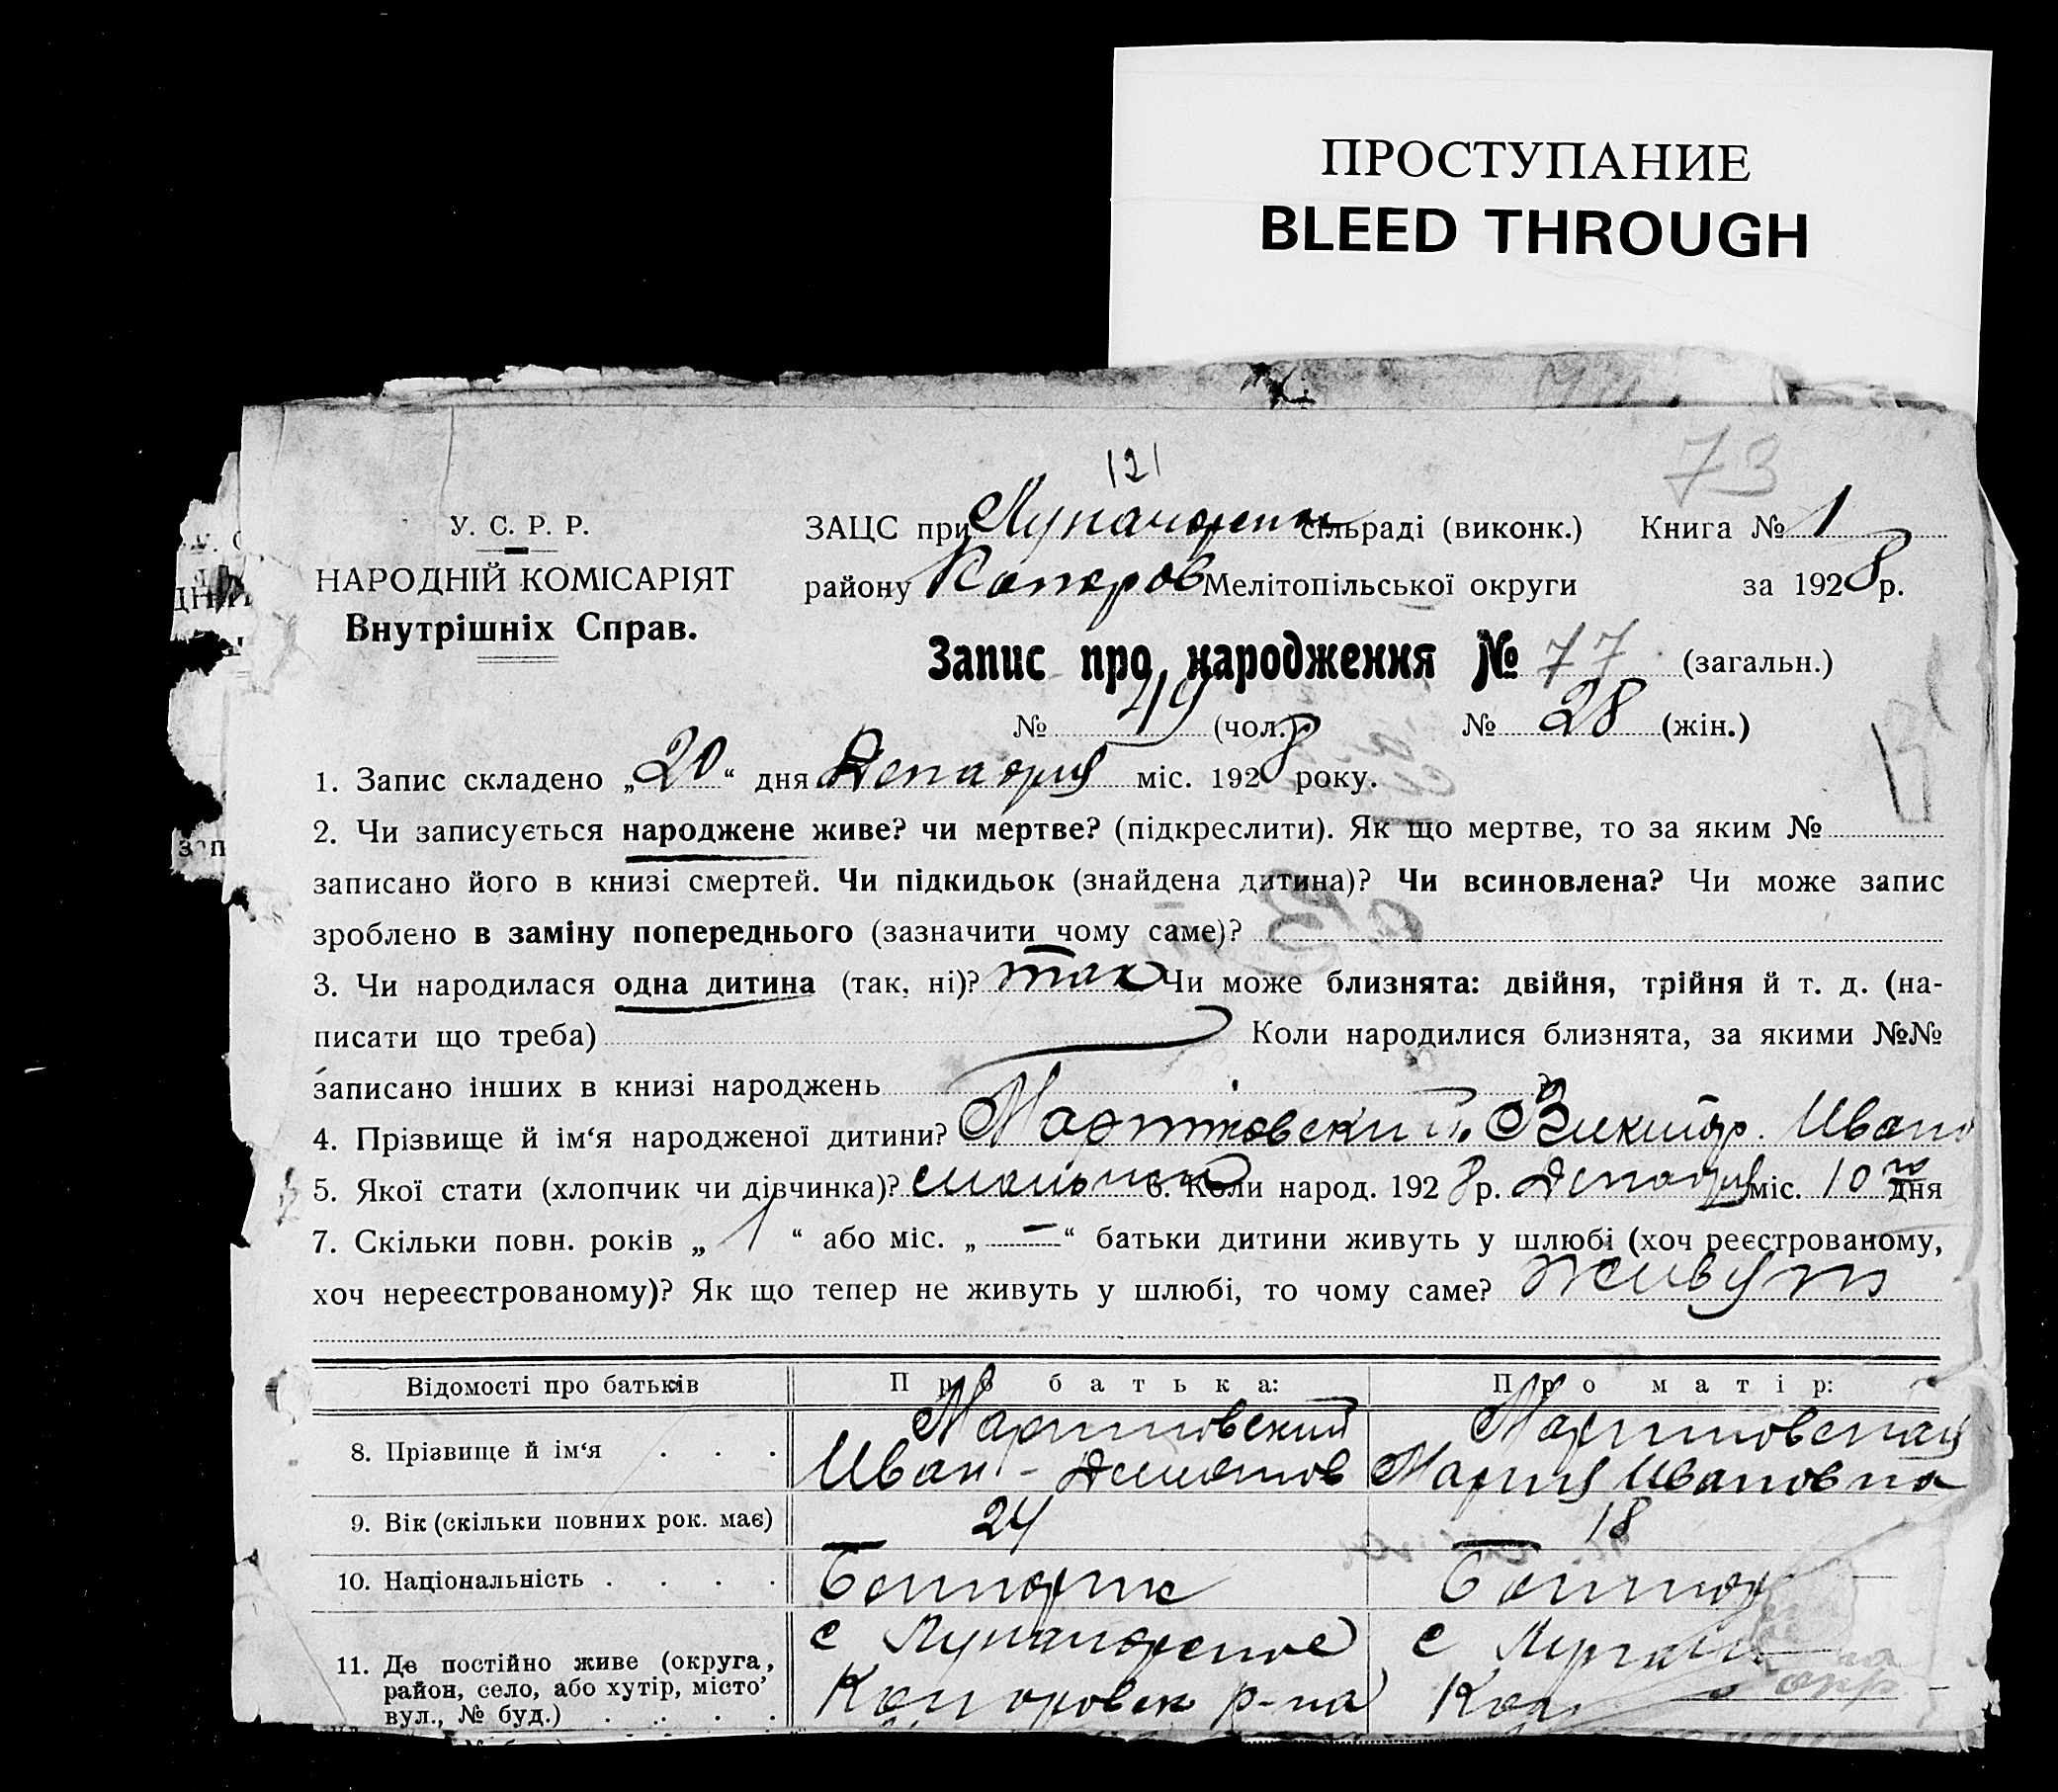 ПРОСТУПАНИЕ
BLEED THROUGH
121
73
У. С. Р. Р.
НАРОДНІЙ КОМІСАРІЯТ
Внутрішніх Справ.
ЗАЦС при сільраді (виконк.) Книга № 1
району Мелітопільської округи за 1928 р.
Запис про народження № 77 (загальн.)
№ 49 (чол.) № 28 (жін.)
1. Запис складено „20“ дня Декабря міс. 1928 року.
2. Чи записується народжене живе? чи мертве? (підкреслити). Як що мертве, то за яким №
записано його в книзі смертей. Чи підкидьок (знайдена дитина)? Чи всиновлена? Чи може запис
зроблено в заміну попереднього (зазначити чому саме)?
3. Чи народилася одна дитина (так, ні)? так Чи може близнята: двійня, трійня й т. д. (на-
писати що треба) Коли народилися близнята, за якими №№
записано інших в книзі народжень
4. Прізвище й ім‘я народженої дитини? Виктор. Иван
5. Якої стати (хлопчик чи дівчинка)? 6. Коли народ. 1928 р. Декабря міс. 10 го дня
7. Скільки повн. років „ 1 “ або міс. „ — “ батьки дитини живуть у шлюбі (хоч реєстрованому,
хоч нереєстрованому)? Як що тепер не живуть у шлюбі, то чому саме? живут
Відомості про батьків Про батька: Про матір:
8. Прізвище й ім‘я . . . Мартиновский Мартиновская
Иван Мария Ивановна
9. Вік (скільки повних рок. має) 24 18
10. Національність . . . .
11. Де постійно живе (округа,
район, село, або хутір, місто
вул., № буд.) . . . . с
р-на